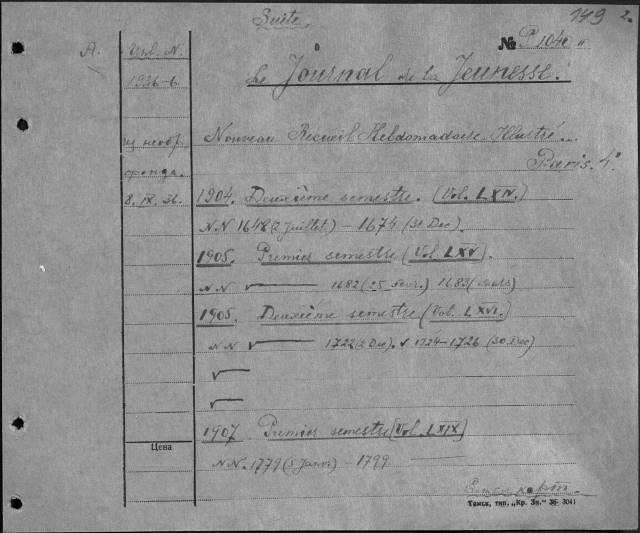 Suite
149 2.
A.
Инв. N.
№ P 1040
1936-6.
Le Journal de la Jeunesse.
из необр.
фонда.
8. IX. 36.
Nouveau Recueil Hebdomadaire Illustré.
Paris. 4°
1904. Deuxième semestre. (Vol. LXIV.)
N.N 1648 (2 Juillet.) – 1674 (31 Dec.)
1905. Premier semestre (Vol. LXV.)
N.N 1682 (25 fevr.) 1683 (mars)
1905. Deuxième semestre (Vol. LXVI.)
N.N 1722 (2 Dec.) 1724–1726 (30 Dec)
1907. Premier semestre (Vol. LXIX)
Цена
N.N. 1779 (5 Janv.) – 1799.
Томск, тип. „Кр. Зн." 36 3041